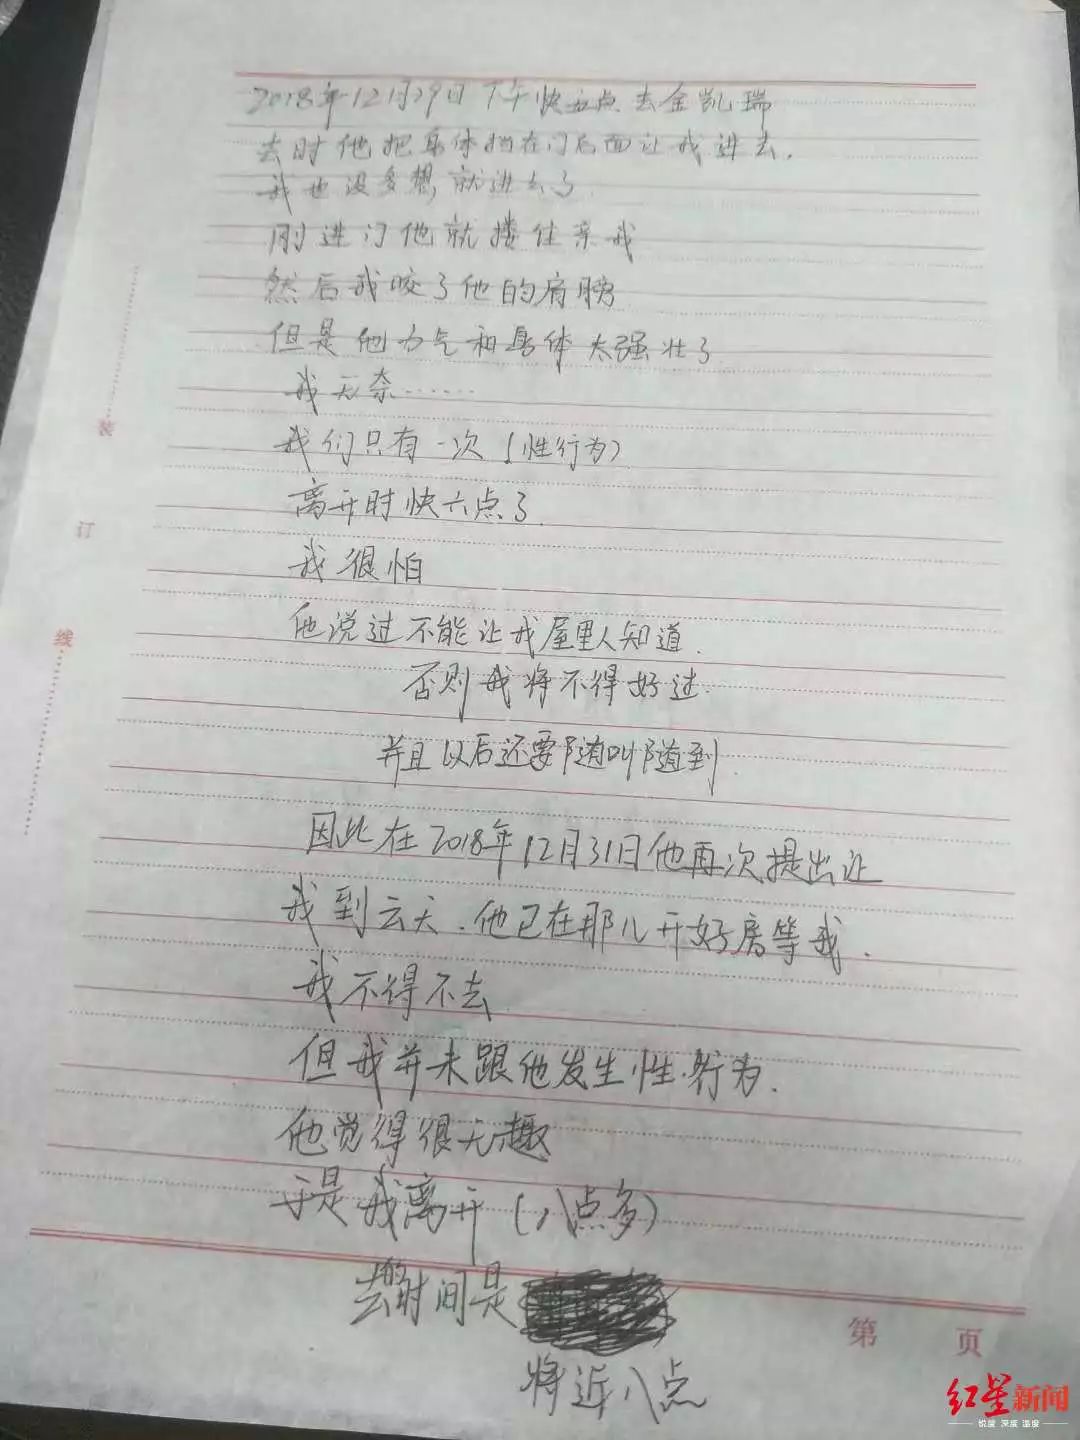 2018年12月29日下午快五点去金凯瑞
去时他把身体挡在门后面让我进去.
我也没多想,就进去了.
刚进门他就搂住亲我
然后我咬了他的肩膀
但是他力气和身体太强壮了
我无奈……
我们只有一次(性行为)
离开时快六点了.
我很怕
他说过不能让我屋里人知道.
否则我将不得好过.
并且以后还要随叫随到.
因此在2018年12月31日他再次提出让
我到云天.他已在那儿开好房等我.
我不得不去
但我并未跟他发生性行为.
他觉得很无趣
于是我离开(八点多)
去的时间是
将近八点
装
订
线
第 页
红星新闻
锐度 深度 温度